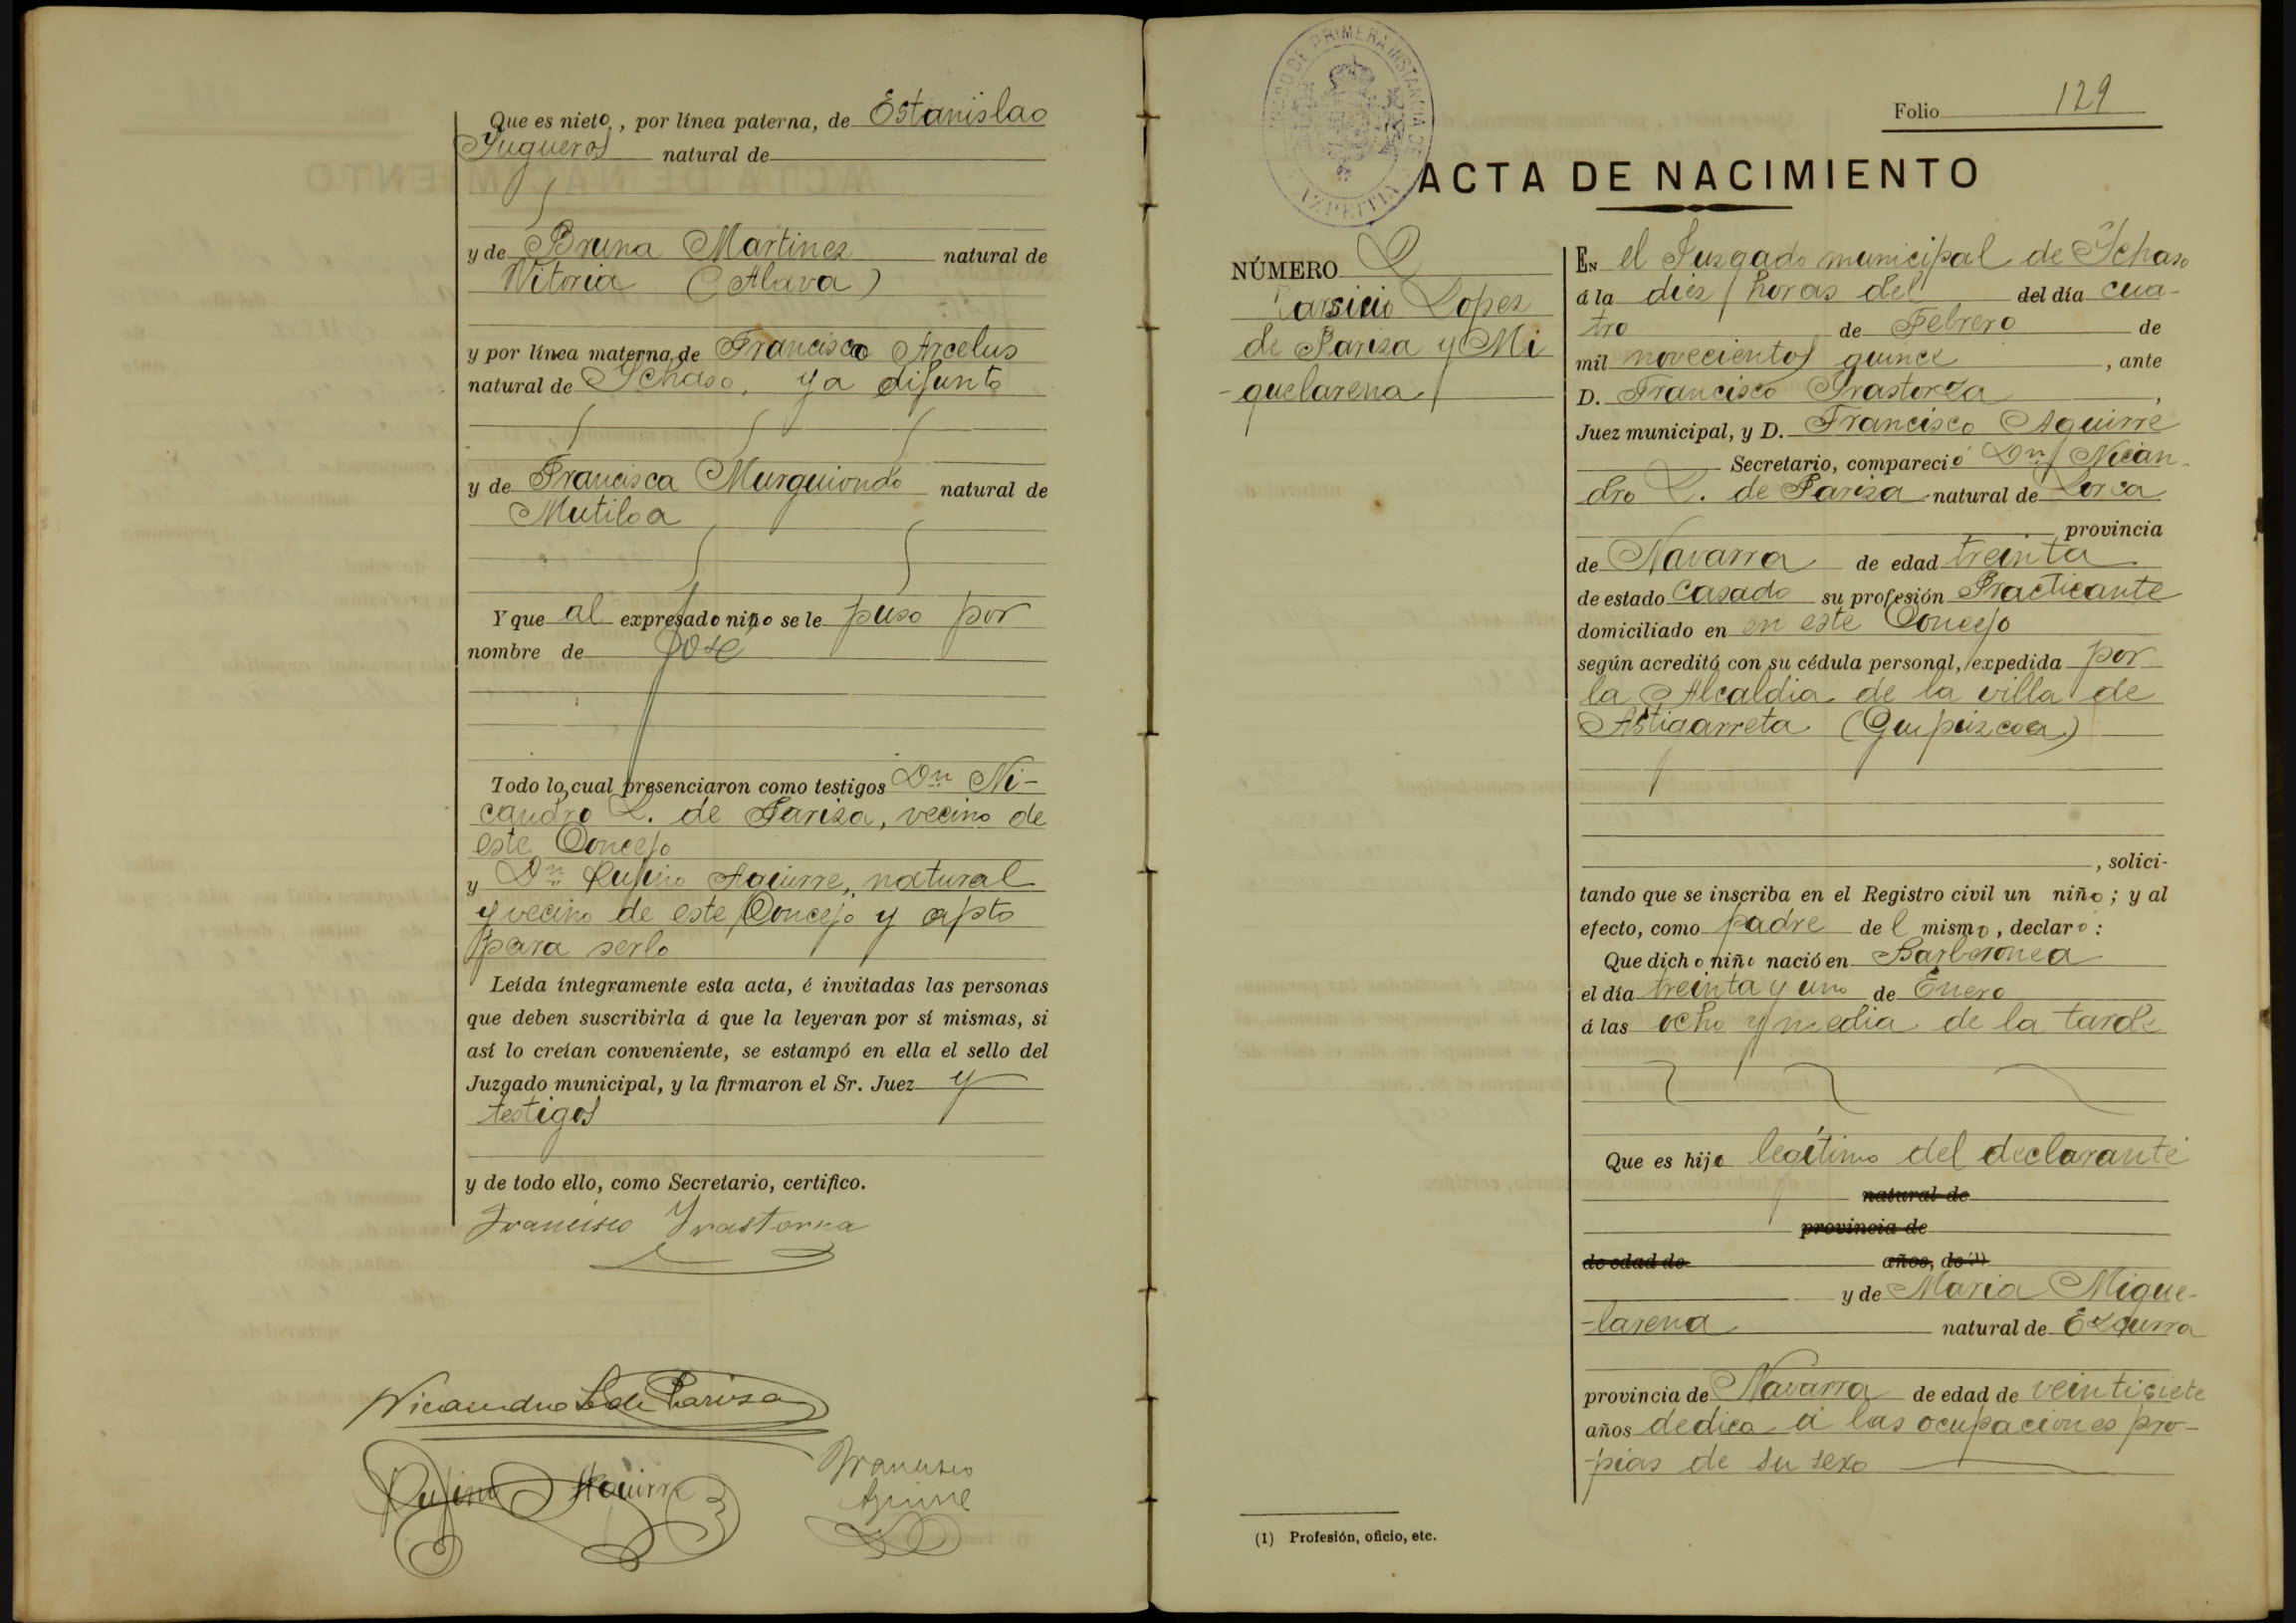 Que es nieto, por línea paterna, de Estanislao
Yugueros natural de
y de Bruna Martinez natural de
Vitoria (Alava)
y por línea materna, de Francisco Arcelus
natural de Ychaso, ya difunto
y de Francisca Murguiondo natural de
Mutiloa
Y que al expresado niño se le puso por
nombre de José
Todo lo cual presenciaron como testigos Dn Ni-
candro L. de Pariza, vecino de
este Concejo
y Dn Rufino Aguirre, natural
y vecino de este Concejo y apto
para serlo
Leída íntegramente esta acta, é invitadas las personas
que deben suscribirla á que la leyeran por sí mismas, si
así lo creían conveniente, se estampó en ella el sello del
Juzgado municipal, y la firmaron el Sr. Juez y
testigos
y de todo ello, como Secretario, certifico.
Francisco Yrastorza
Nicandro L de Pariza
Rufino Aguirre
Francisco
Aguirre
JUZGADO DE PRIMERA INSTANCIA DE AZPEITIA
Folio 129
ACTA DE NACIMIENTO
NÚMERO 2
Tarsicio Lopez
de Pariza y Mi
-quelarena
EN el Juzgado municipal de Ychaso
á la diez horas del del día cua-
tro de Febrero de
mil novecientos quince, ante
D. Francisco Yrastorza,
Juez municipal, y D. Francisco Aguirre
Secretario, compareció Dn Nican-
dro L. de Pariza natural de Lorca
provincia
de Navarra de edad treinta
de estado Casado su profesión Practicante
domiciliado en en este Concejo
según acreditó con su cédula personal, expedida por
la Alcaldia de la villa de
Astigarreta (Guipúzcoa)
, solici-
tando que se inscriba en el Registro civil un niño; y al
efecto, como padre del mismo, declaró:
Que dicho niño nació en Barberonea
el día treinta y uno de Enero
á las ocho y media de la tarde
Que es hijo legítimo del declarante
natural de
provincia de
de edad de años, de (1)
y de Maria Migue-
-larena natural de Ezcurra
provincia de Navarra de edad de veintisiete
años dedica á las ocupaciones pro-
-pias de su sexo
(1) Profesión, oficio, etc.